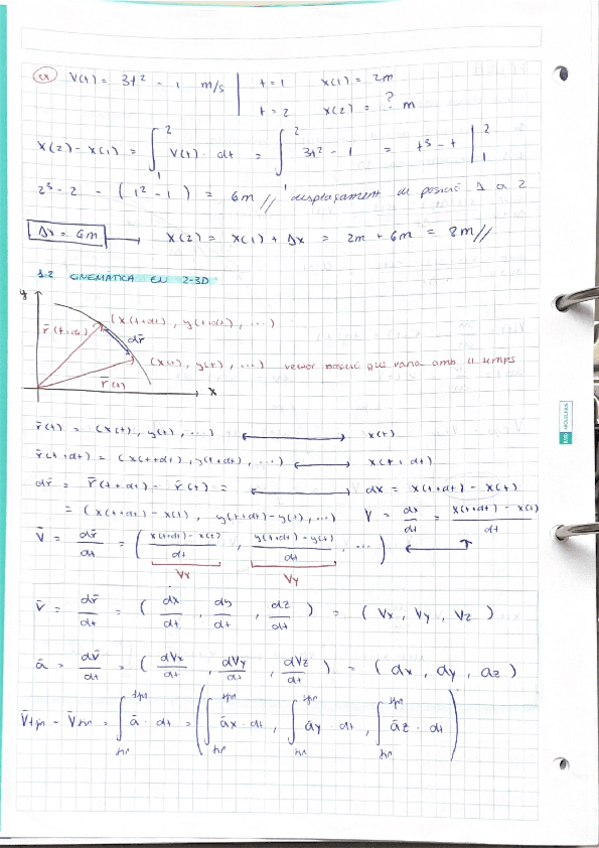 ex V(t) = 3t² - 1 m/s | t=1 x(1) = 2m
t=2 x(2) = ? m
x(2) - x(1) = ∫₁² V(t) · dt = ∫₁² 3t² - 1 = t³ - t |₁²
2³ - 2 - (1² - 1) = 6m // desplaçament de posició 1 a 2
Δx = 6m → x(2) = x(1) + Δx = 2m + 6m = 8m //
1.2 CINEMÀTICA EN 2-3D
y
(x(t+dt), y(t+dt), ...)
r̄(t+dt) dr̄
(x(t), y(t), ...) vector posició que varia amb el temps
r̄(t) x
r̄(t) = (x(t), y(t), ...) ⟷ x(t)
r̄(t+dt) = (x(t+dt), y(t+dt), ...) ⟷ x(t+dt)
dr̄ = r̄(t+dt) - r̄(t) = ⟷ dx = x(t+dt) - x(t)
= (x(t+dt) - x(t), y(t+dt) - y(t), ...) V = dx/dt = x(t+dt) - x(t)/dt
V̄ = dr̄/dt = (x(t+dt) - x(t)/dt, y(t+dt) - y(t)/dt, ...)
Vx Vy
V̄ = dr̄/dt = (dx/dt, dy/dt, dz/dt) = (Vx, Vy, Vz)
ā = dV̄/dt = (dVx/dt, dVy/dt, dVz/dt) = (ax, ay, az)
ā · dt = (∫ āx · dt, ∫ āy · dt, ∫ āz · dt)